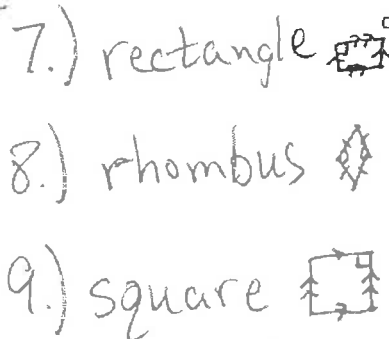 7.) rectangle
8.) rhombus
9.) square